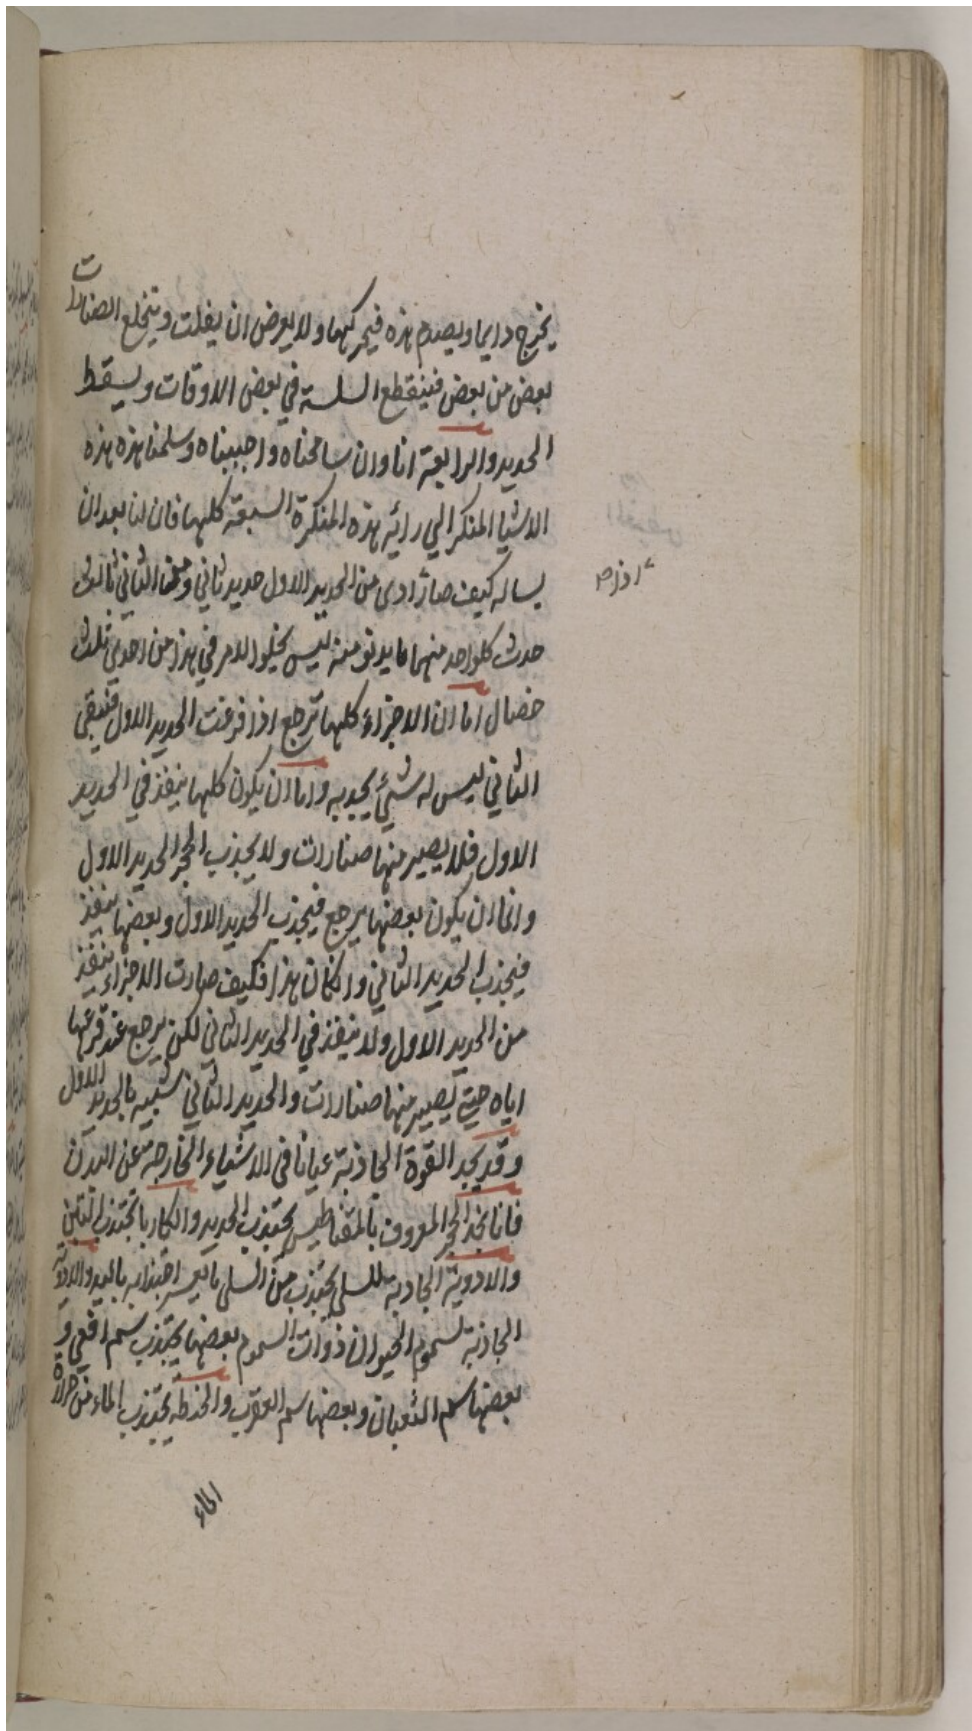 يخرج دايما ويصدم هذه فيحركها ولا يعرض ان يفلت ويتخلع الصنارات
بعض من بعض فينقطع السلسة في بعض الاوقات ويسقط
الحديد والرابعة انا وان سامحناه واجبناه وسلمنا هذه هذه
الاشيا المنكرا لي رائه هذه المنكرة السبعة كلها فان لنا بعد ان
نساله كيف صار ادى من الحديد الاول حديد ثاني ومن الثاني ثالث
حدث كلواحد منهما ما يدنو منه ليس يخلوا الامر في هذا من احدي ثلث
خصال اما ان الاجزاء كلها ترجع اذا قرعت الحديد الاول فيبقى
الثاني ليس له شيئ يجدبه واما ان يكون كلها ينفذ في الحديد
الاول فلا يصير منها صنارات ولا يجذب الحجر الحديد الاول
واما ان يكون بعضها يرجع فيجذب الحديد الاول وبعضها ينفذ
فيجذب الحديد الثاني وان كان هذا فكيف صارت الاجزاء ينفذ
من الحديد الاول ولا ينفذ في الحديد الثاني لكن يرجع عند قرعها
اياه حتي يصير منها صنارات والحديد الثاني شبيه بالحديد الاول
وقد يجد القوة الجاذبة عيانا في الاشياء الخارجة عن البدن
فانا نجد الحجر المعروف بالمقناطيس يجتذب الحديد والكاربا تجتذب التبن
والادوية الجاذبة للسلي يجتذب من السلي ما يعسر اجتذابه باليد والادوية
الجاذبة لسموم الحيوان ذوات السموم بعضها يجتذب سم افعي و
بعضها سم الثعبان وبعضها سم العقرب والحنطة يجتذب الماء من جرار
الماء